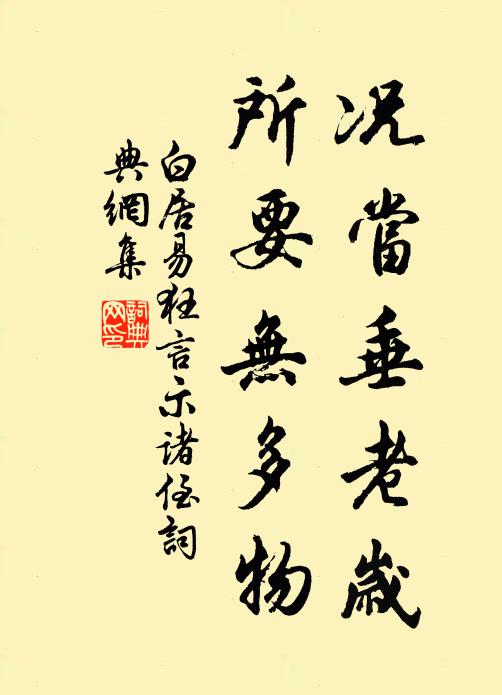 况當垂老歲
所要無多物
白居易狂言示諸侄詞
典網集
詞典
网印